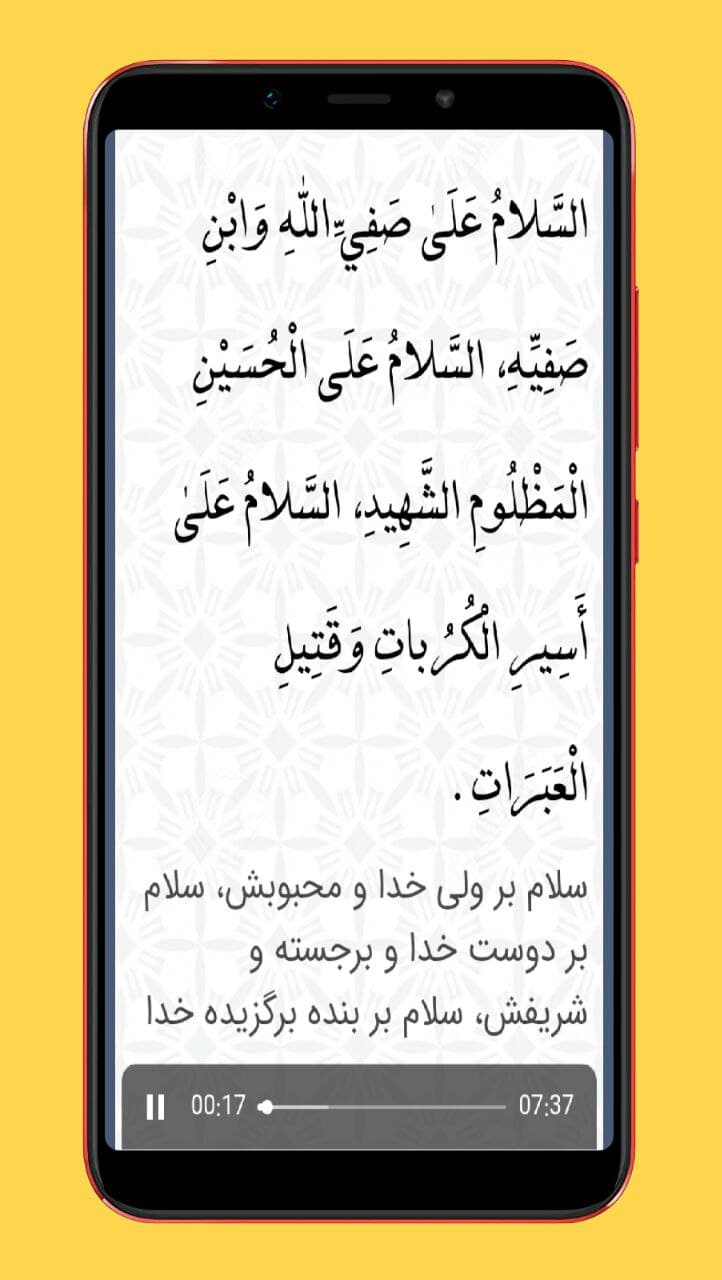 السَّلامُ عَلَىٰ صَفِيِّ اللّٰهِ وَابْنِ
صَفِيِّهِ، السَّلامُ عَلَى الْحُسَيْنِ
الْمَظْلُومِ الشَّهِيدِ، السَّلامُ عَلَىٰ
أَسِيرِ الْكُرُباتِ وَقَتِيلِ
الْعَبَرَاتِ .
سلام بر ولی خدا و محبوبش، سلام
بر دوست خدا و برجسته و
شریفش، سلام بر بنده برگزیده خدا
00:17 07:37